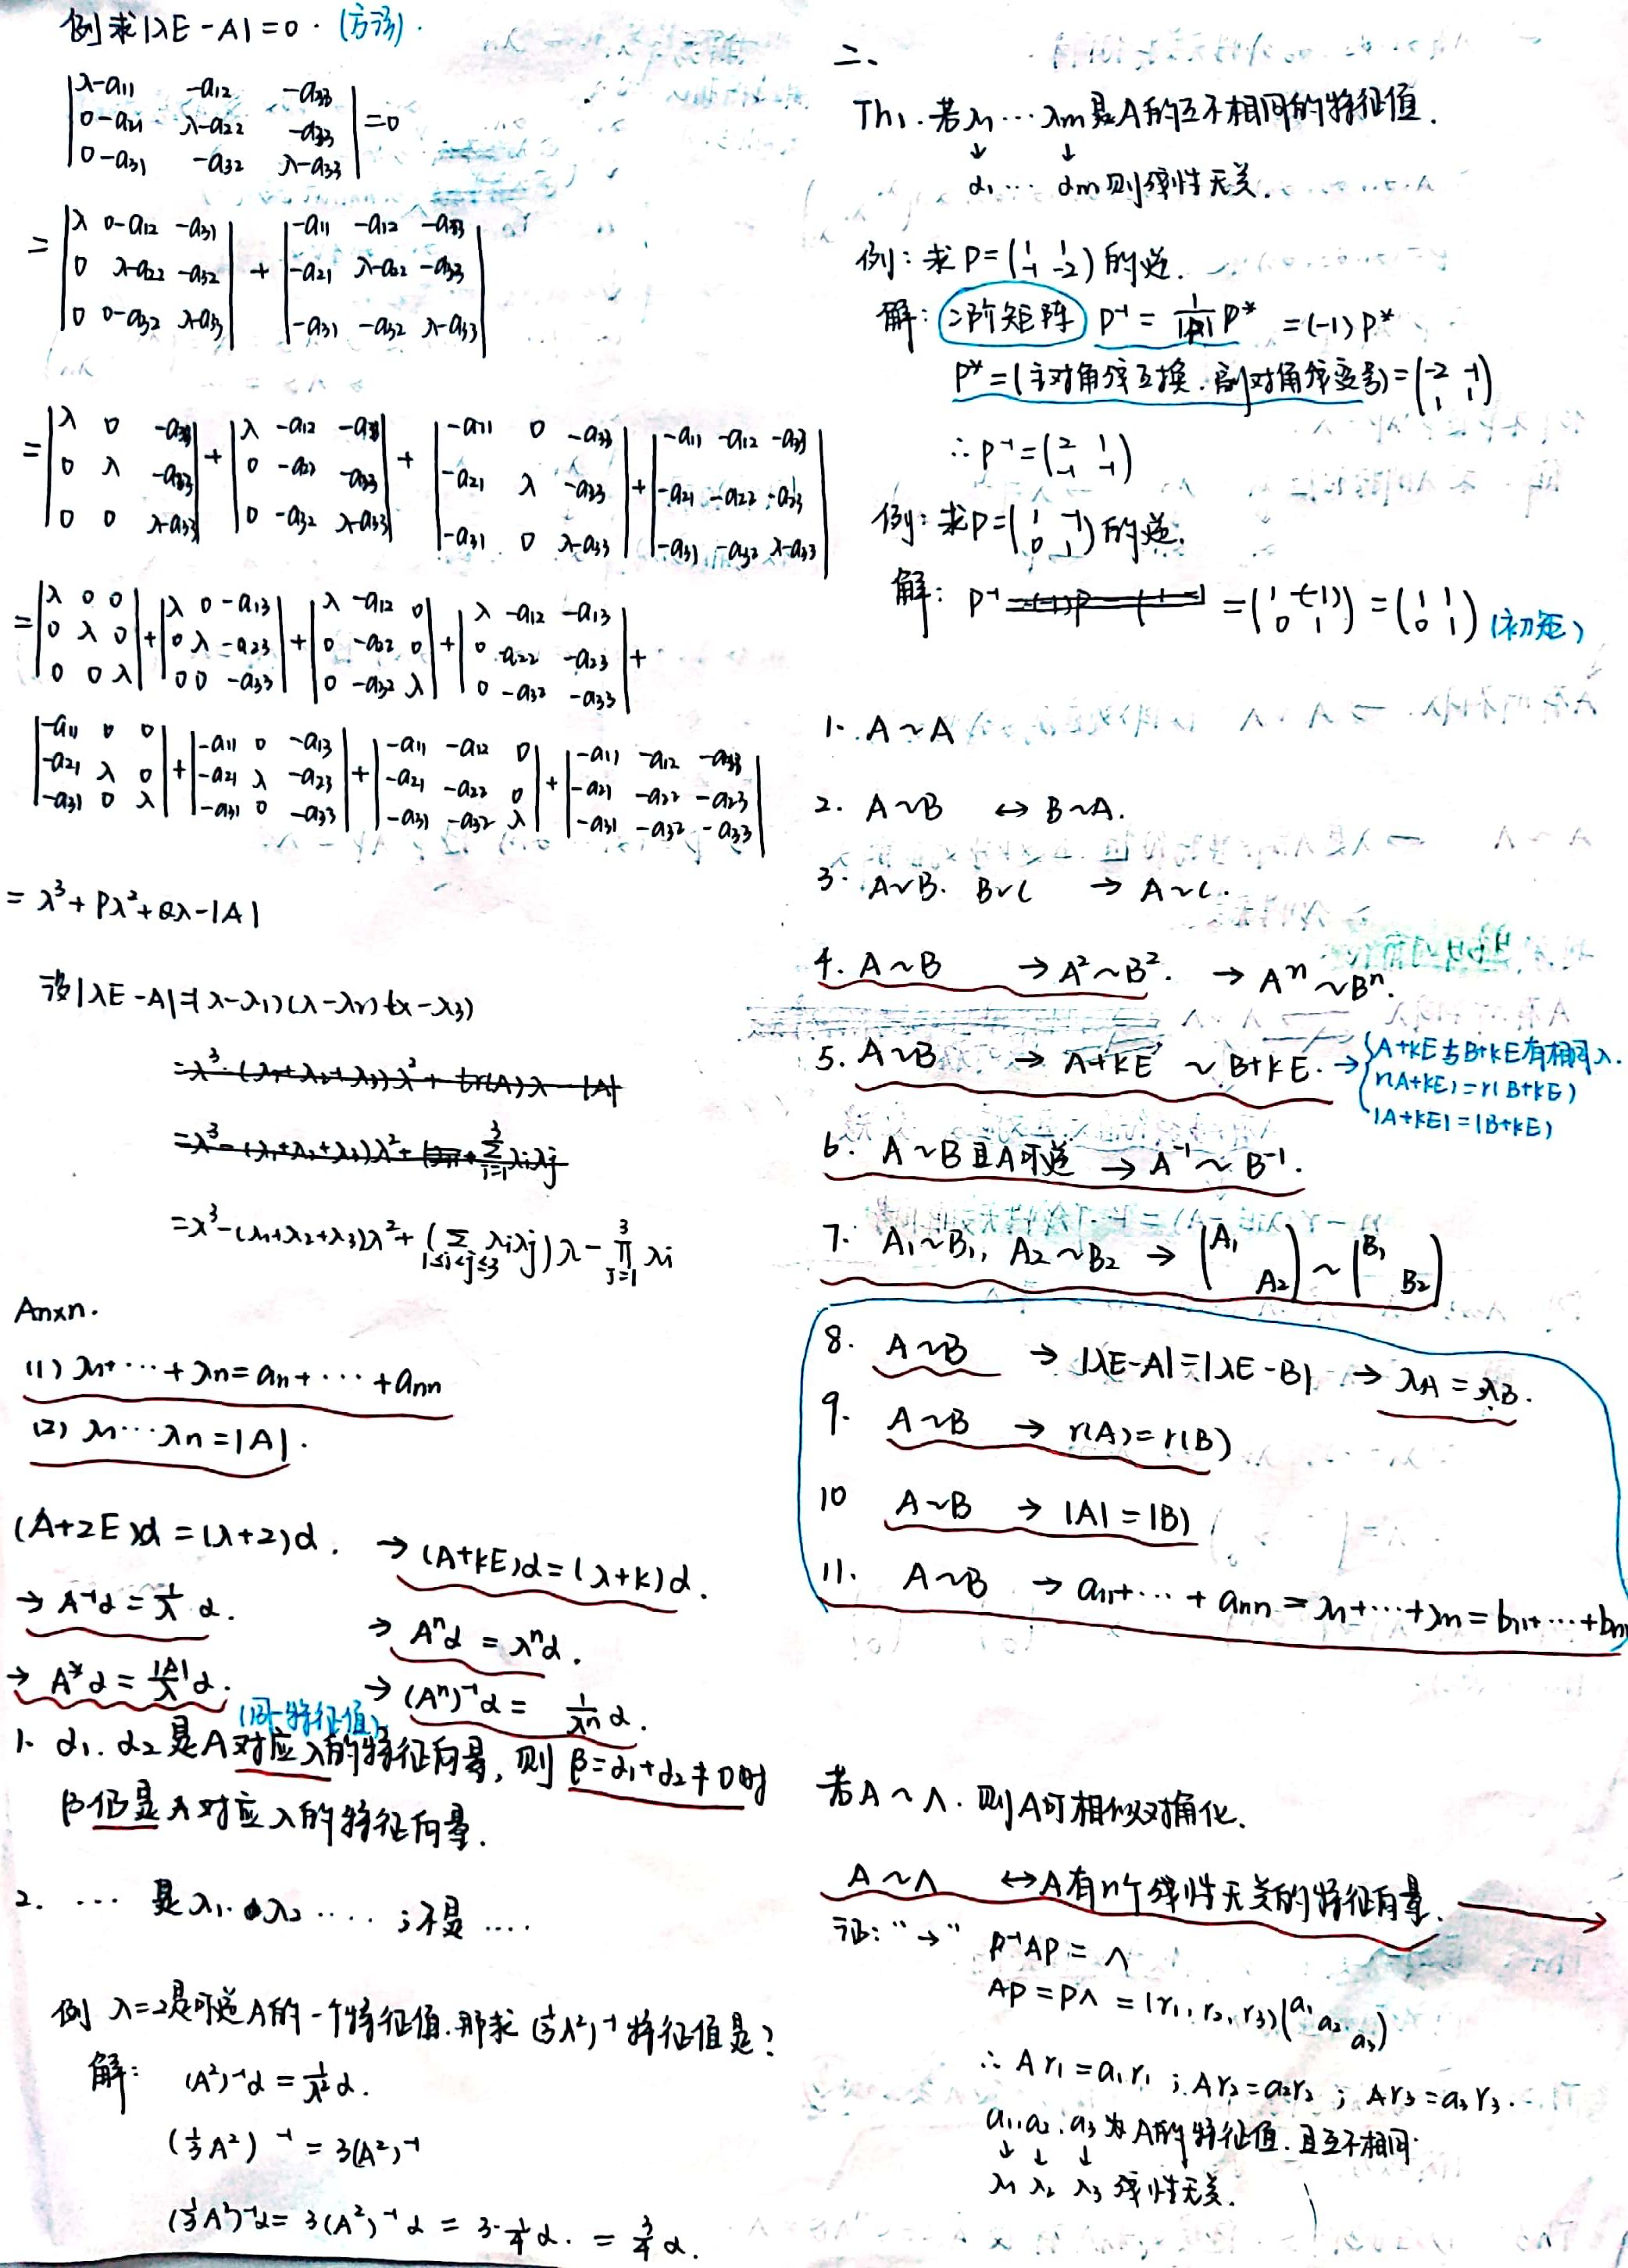 例 求|λE-A|=0. (方形).
|λ-a11 -a12 -a33|
|0-a21 λ-a22 -a33| =0
|0-a31 -a32 λ-a33|
= |λ 0-a12 -a31| + |-a11 -a12 -a33|
|0 λ-a22 -a32| |-a21 λ-a22 -a33|
|0 0-a32 λ-a33| |-a31 -a32 λ-a33|
= |λ 0 -a33| + |λ -a12 -a33| + |-a11 0 -a33| + |-a11 -a12 -a33|
|0 λ -a33| |0 -a22 -a33| |-a21 λ -a33| |-a21 -a22 -a33|
|0 0 λ-a33| |0 -a32 λ-a33| |-a31 0 λ-a33| |-a31 -a32 λ-a33|
= |λ 0 0| + |λ 0 -a13| + |λ -a12 0| + |λ -a12 -a13| +
|0 λ 0| |0 λ -a23| |0 -a22 0| |0 -a22 -a23|
|0 0 λ| |0 0 -a33| |0 -a32 λ| |0 -a32 -a33|
|-a11 0 0| + |-a11 0 -a13| + |-a11 -a12 0| + |-a11 -a12 -a33|
|-a21 λ 0| |-a21 λ -a23| |-a21 -a22 0| |-a21 -a22 -a23|
|-a31 0 λ| |-a31 0 -a33| |-a31 -a32 λ| |-a31 -a32 -a33|
= λ³+Pλ²+Qλ-|A|
设|λE-A|=(λ-λ1)(λ-λ2)(λ-λ3)
=λ³-(λ1+λ2+λ3)λ²+tr(A)λ-|A|
=λ³-(λ1+λ2+λ3)λ²+ Σ(i=1→3) λiλj
=λ³-(λ1+λ2+λ3)λ²+(Σ(1≤i<j≤3) λiλj)λ-∏(j=1→3) λi
An×n.
(1) λ1+⋯+λn=a11+⋯+ann
(2) λ1⋯λn=|A|.
(A+2E)α=(λ+2)α. → (A+kE)α=(λ+k)α.
→ A⁻¹α=1/λ α. → Aⁿα=λⁿα.
→ A*α=|A|/λ α. → (Aⁿ)⁻¹α= 1/λⁿ α.
(同一特征值)
1. α1. α2是A对应λ的特征向量, 则β=α1+α2≠0时
β仍是A对应λ的特征向量.
2. ⋯ 是λ1. λ2 ⋯⋯ ;不是 ⋯⋯
例 λ=2是可逆A的一个特征值.那求(1/3A²)⁻¹特征值是?
解: (A²)⁻¹α=1/λ²α.
(1/3A²)⁻¹=3(A²)⁻¹
(1/3A²)⁻¹α=3(A²)⁻¹α=3·1/4α. =3/4α.
二、
Th1.若λ1⋯λm是A的互不相同的特征值.
↓ ↓
α1⋯ αm则线性无关.
例: 求P=(1 1; -1 -2)的逆.
解: 2阶矩阵 P⁻¹=1/|P| P* =(-1)P*
P*=(主对角线互换.副对角线变号)=(-2 -1; 1 1)
∴P⁻¹=(2 1; -1 -1)
例: 求P=(1 -1; 0 1)的逆.
解: P⁻¹ =(1 -(-1); 0 1)=(1 1; 0 1) (初矩)
1. A~A
2. A~B ↔ B~A.
3. A~B. B~C → A~C.
4. A~B → A²~B². → Aⁿ~Bⁿ.
5. A~B → A+kE ~ B+kE. → {A+kE与B+kE有相同λ.
r(A+kE)=r(B+kE)
|A+kE|=|B+kE|
6. A~B且A可逆 → A⁻¹~B⁻¹.
7. A1~B1, A2~B2 → (A1 A2) ~ (B1 B2)
8. A~B → |λE-A|=|λE-B| → λA=λB.
9. A~B → r(A)=r(B)
10 A~B → |A|=|B|
11. A~B → a11+⋯+ann=λ1+⋯+λn=b11+⋯+bnn
若A~Λ. 则A可相似对角化.
A~Λ ↔A有n个线性无关的特征向量.
证: "→" P⁻¹AP=Λ
AP=PΛ=(r1, r2, r3)(a1 a2 a3)
∴ Ar1=a1r1 ; Ar2=a2r2 ; Ar3=a3r3.
a1. a2. a3为A的特征值.且互不相同.
↓ ↓ ↓
λ1 λ2 λ3 线性无关.